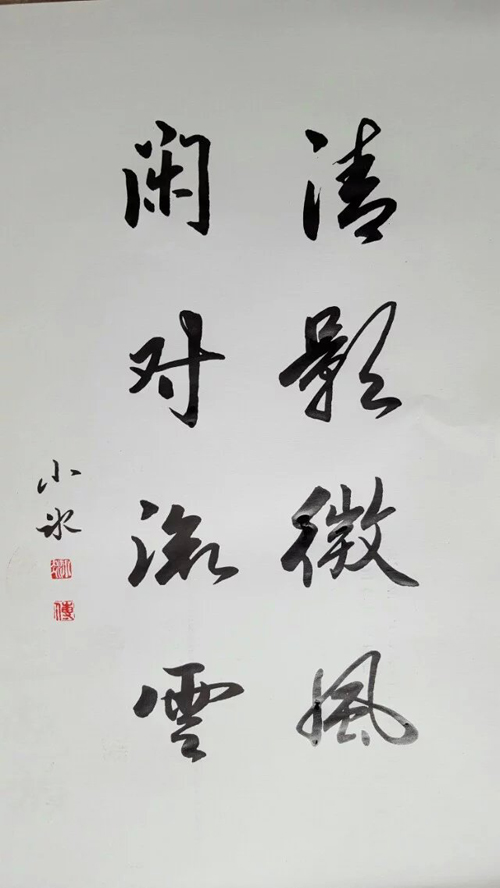 清影微風
闲对流雲
小冰